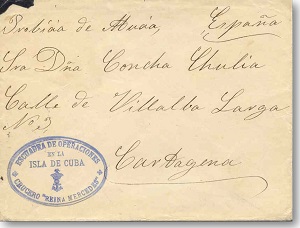 Probiᵃ de Murᵃ, España
Sra Dña Concha Chulia
Calle de Villalba Larga
Nº 3
Cartagena
ESCUADRA DE OPERACIONES
EN LA
ISLA DE CUBA
CRUCERO "REINA MERCEDES"